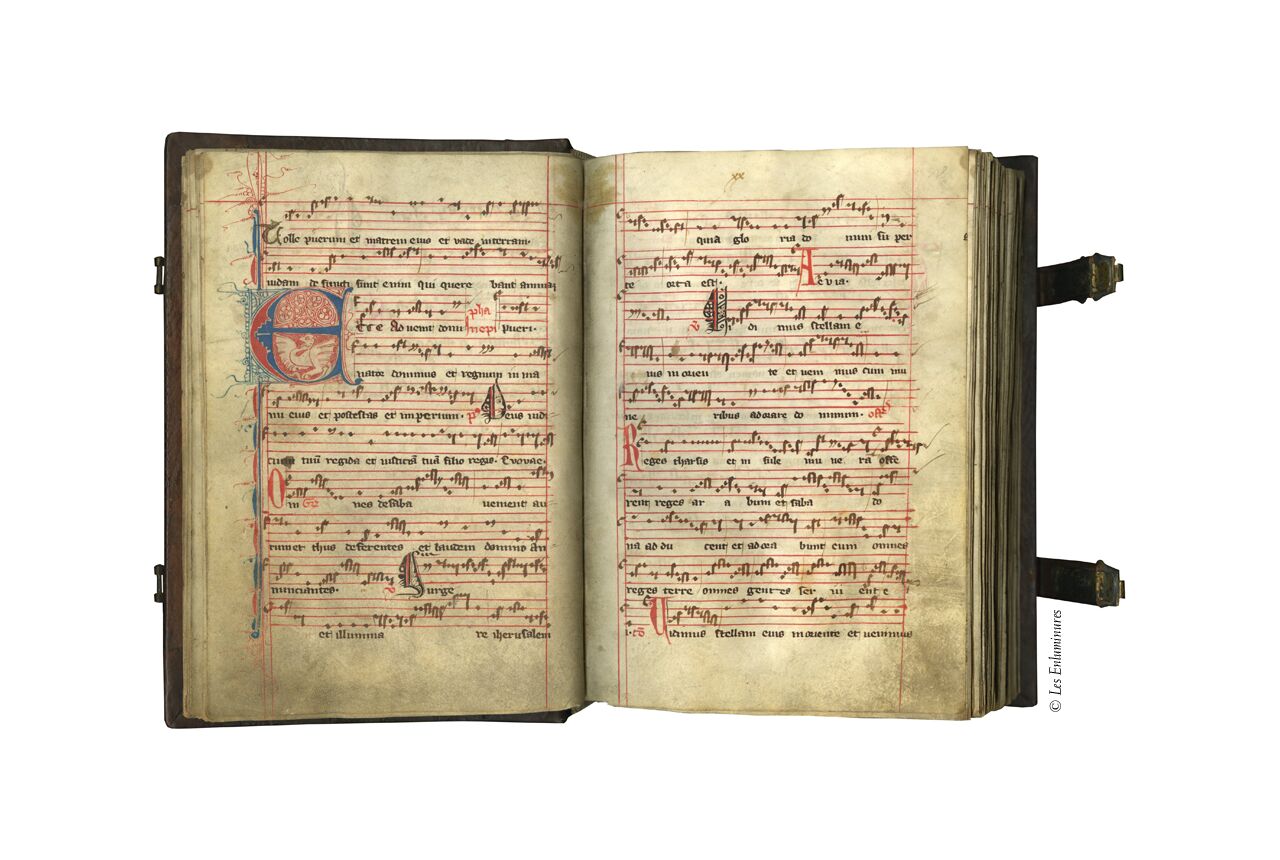 Tolle puerum et matrem eius et vade in terram·
iudam defuncti sunt enim qui quere bant animam
Ecce Advenit domi pha nepi pueri·
nator dominus et regnum in ma
nu eius et potestas et imperium· ps Deus iudi
cium tuum regi da et iusticiam tuam filio regis· Evovae·
Om Gr nes de saba venient au
rum et thus deferentes et laudem domino an
nunciantes· v Surge
et illumina re iherusalem
xx
quia glo ria do mini su per
te orta est· A evia·
v Vi di mus stellam e
ius in orien te et veni mus cum mu
ne ribus adorare do minum· offer
Reges tharsis et in sule mu ne ra offe
rent reges ar a bum et saba do
na ad du cent et adora bunt eum omnes
reges terre omnes gentes ser vi ent e
i· co Vidimus stellam eius in oriente et venimus
© Les Enluminures